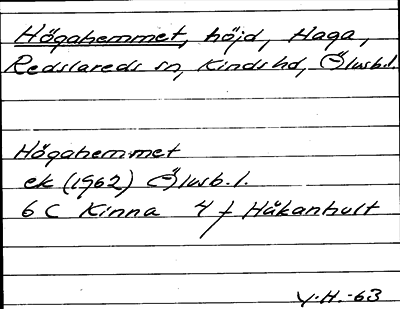 Högahemmet, höjd, Haga,
Redslareds sn, Kinds hd, Älvsb.l.
Högahemmet
ek (1962) Älvsb.l.
6 C Kinna 4 f Håkanhult
Y.H.-63